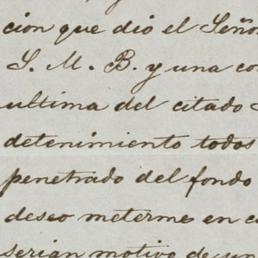 cion que dió el Señor
S. M. B. y una co
ultima del citado
detenimiento todos
penetrado del fondo
deseo meterme en c
serian motivo de un